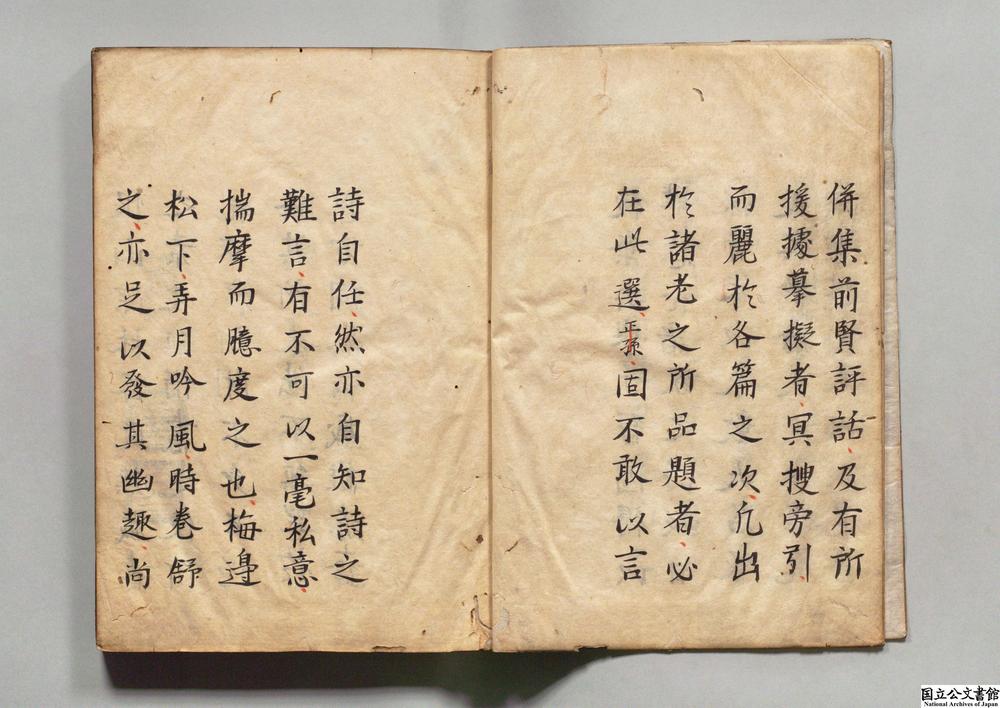 併集前賢評話及有所
援據摹擬者冥搜旁引
而麗於各篇之次凡出
於諸老之所品題者必
在此選正孫固不敢以言
詩自任然亦自知詩之
難言有不可以一毫私意
揣摩而臆度之也梅邉
松下弄月吟風時巻舒
之亦足以發其幽趣尚
国立公文書館
National Archives of Japan